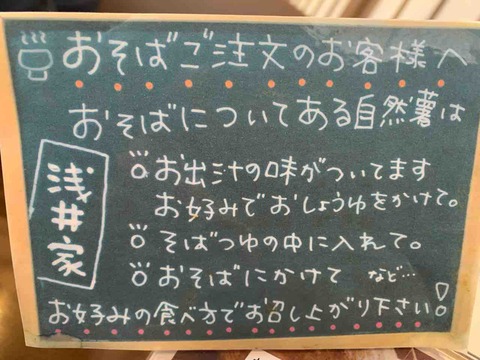 おそばご注文のお客様へ
おそばについてある自然薯は
浅井家
お出汁の味がついてます
お好みでおしょうゆをかけて。
そばつゆの中に入れて。
おそばにかけて など…
お好みの食べ方でお召し上がり下さい!